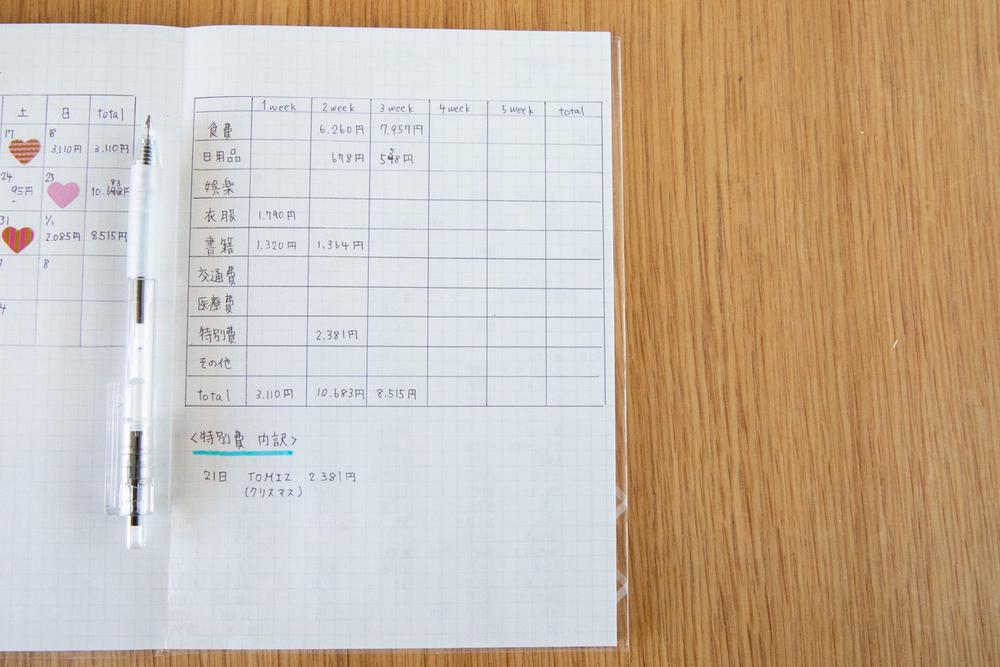 土 日 total
17 18 3,110円 3.110円
24 95円 25 10.683円
31 1/1 2.085円 8515円
7 8
4
1week 2week 3week 4week 5week total
食費 6.260円 7.957円
日用品 678円 558円
娯楽
衣服 1.790円
書籍 1.320円 1,364円
交通費
医療費
特別費 2.381円
その他
total 3.110円 10.683円 8.515円
<特別費 内訳>
21日 TOMIZ 2.381円
(クリスマス)